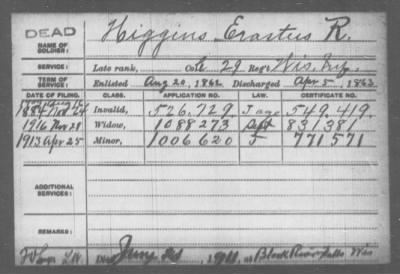 DEAD
NAME OF SOLDIER: Higgins, Erastus R.
SERVICE: Late rank, Co. 29 Reg't Wis. Inf.
TERM OF SERVICE: Enlisted Aug 20, 1862 Discharged Apr 5, 1863
DATE OF FILING. CLASS. APPLICATION NO. LAW. CERTIFICATE NO.
Invalid, 526,729. 549,419.
1916 Nov 28 Widow, 1088273 831,381
1913 Apr 25 Minor, 1006620 771571
ADDITIONAL SERVICES:
REMARKS:
Died at Black River Falls Wis